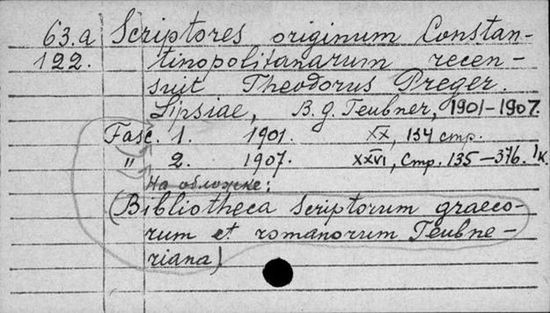 63.a Scriptores originum Constan-
122. tinopolitanarum recen-
suit Theodorus Preger.
Lipsiae, B.G. Teubner, 1901-1907.
Fasc. 1. 1901. XX, 134 стр.
" 2. 1907. XXVI, Стр. 135-376. 1к.
На обложке:
(Bibliotheca scriptorum graeco-
rum et romanorum Teubne-
riana)